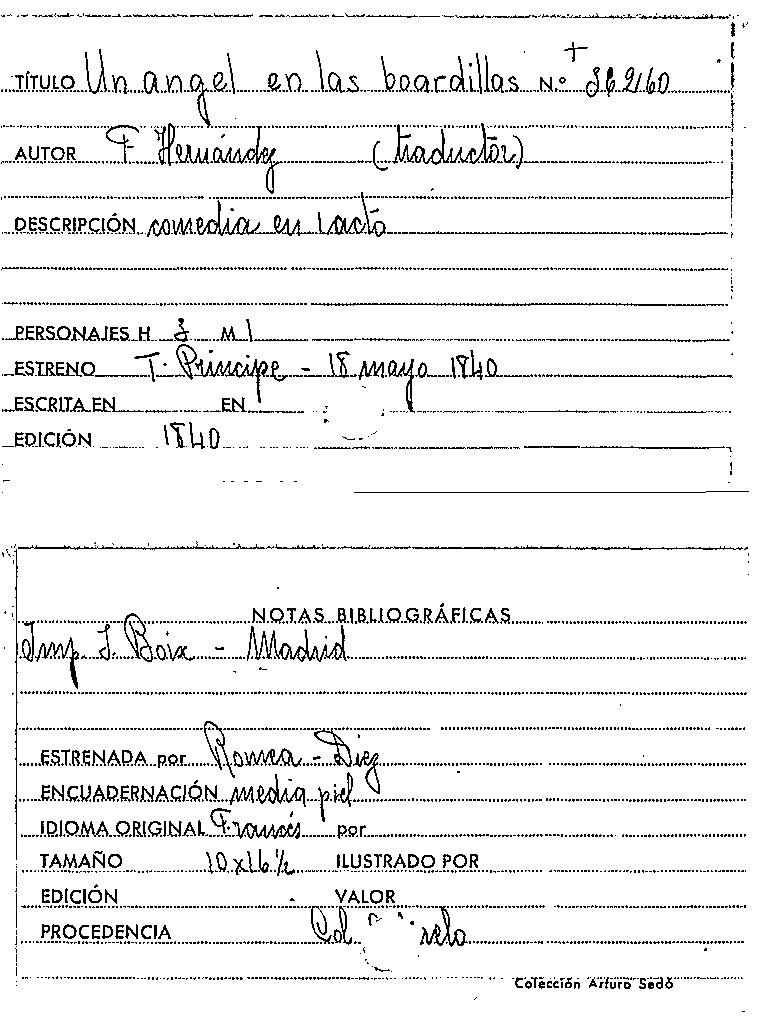 TÍTULO Un angel en las boardillas N.º 362160
AUTOR F Hernández (traductor)
DESCRIPCIÓN comedia en 1 acto
PERSONAJES H 3 M 1
ESTRENO T. Principe - 18 mayo 1840
ESCRITA EN EN
EDICIÓN 1840
NOTAS BIBLIOGRÁFICAS
Imp. I. Boix - Madrid
ESTRENADA por Romea - Diez
ENCUADERNACIÓN media piel
IDIOMA ORIGINAL Francés por
TAMAÑO 10 x 16 ½ ILUSTRADO POR
EDICIÓN VALOR
PROCEDENCIA Col.
Colección Arturo Sedó